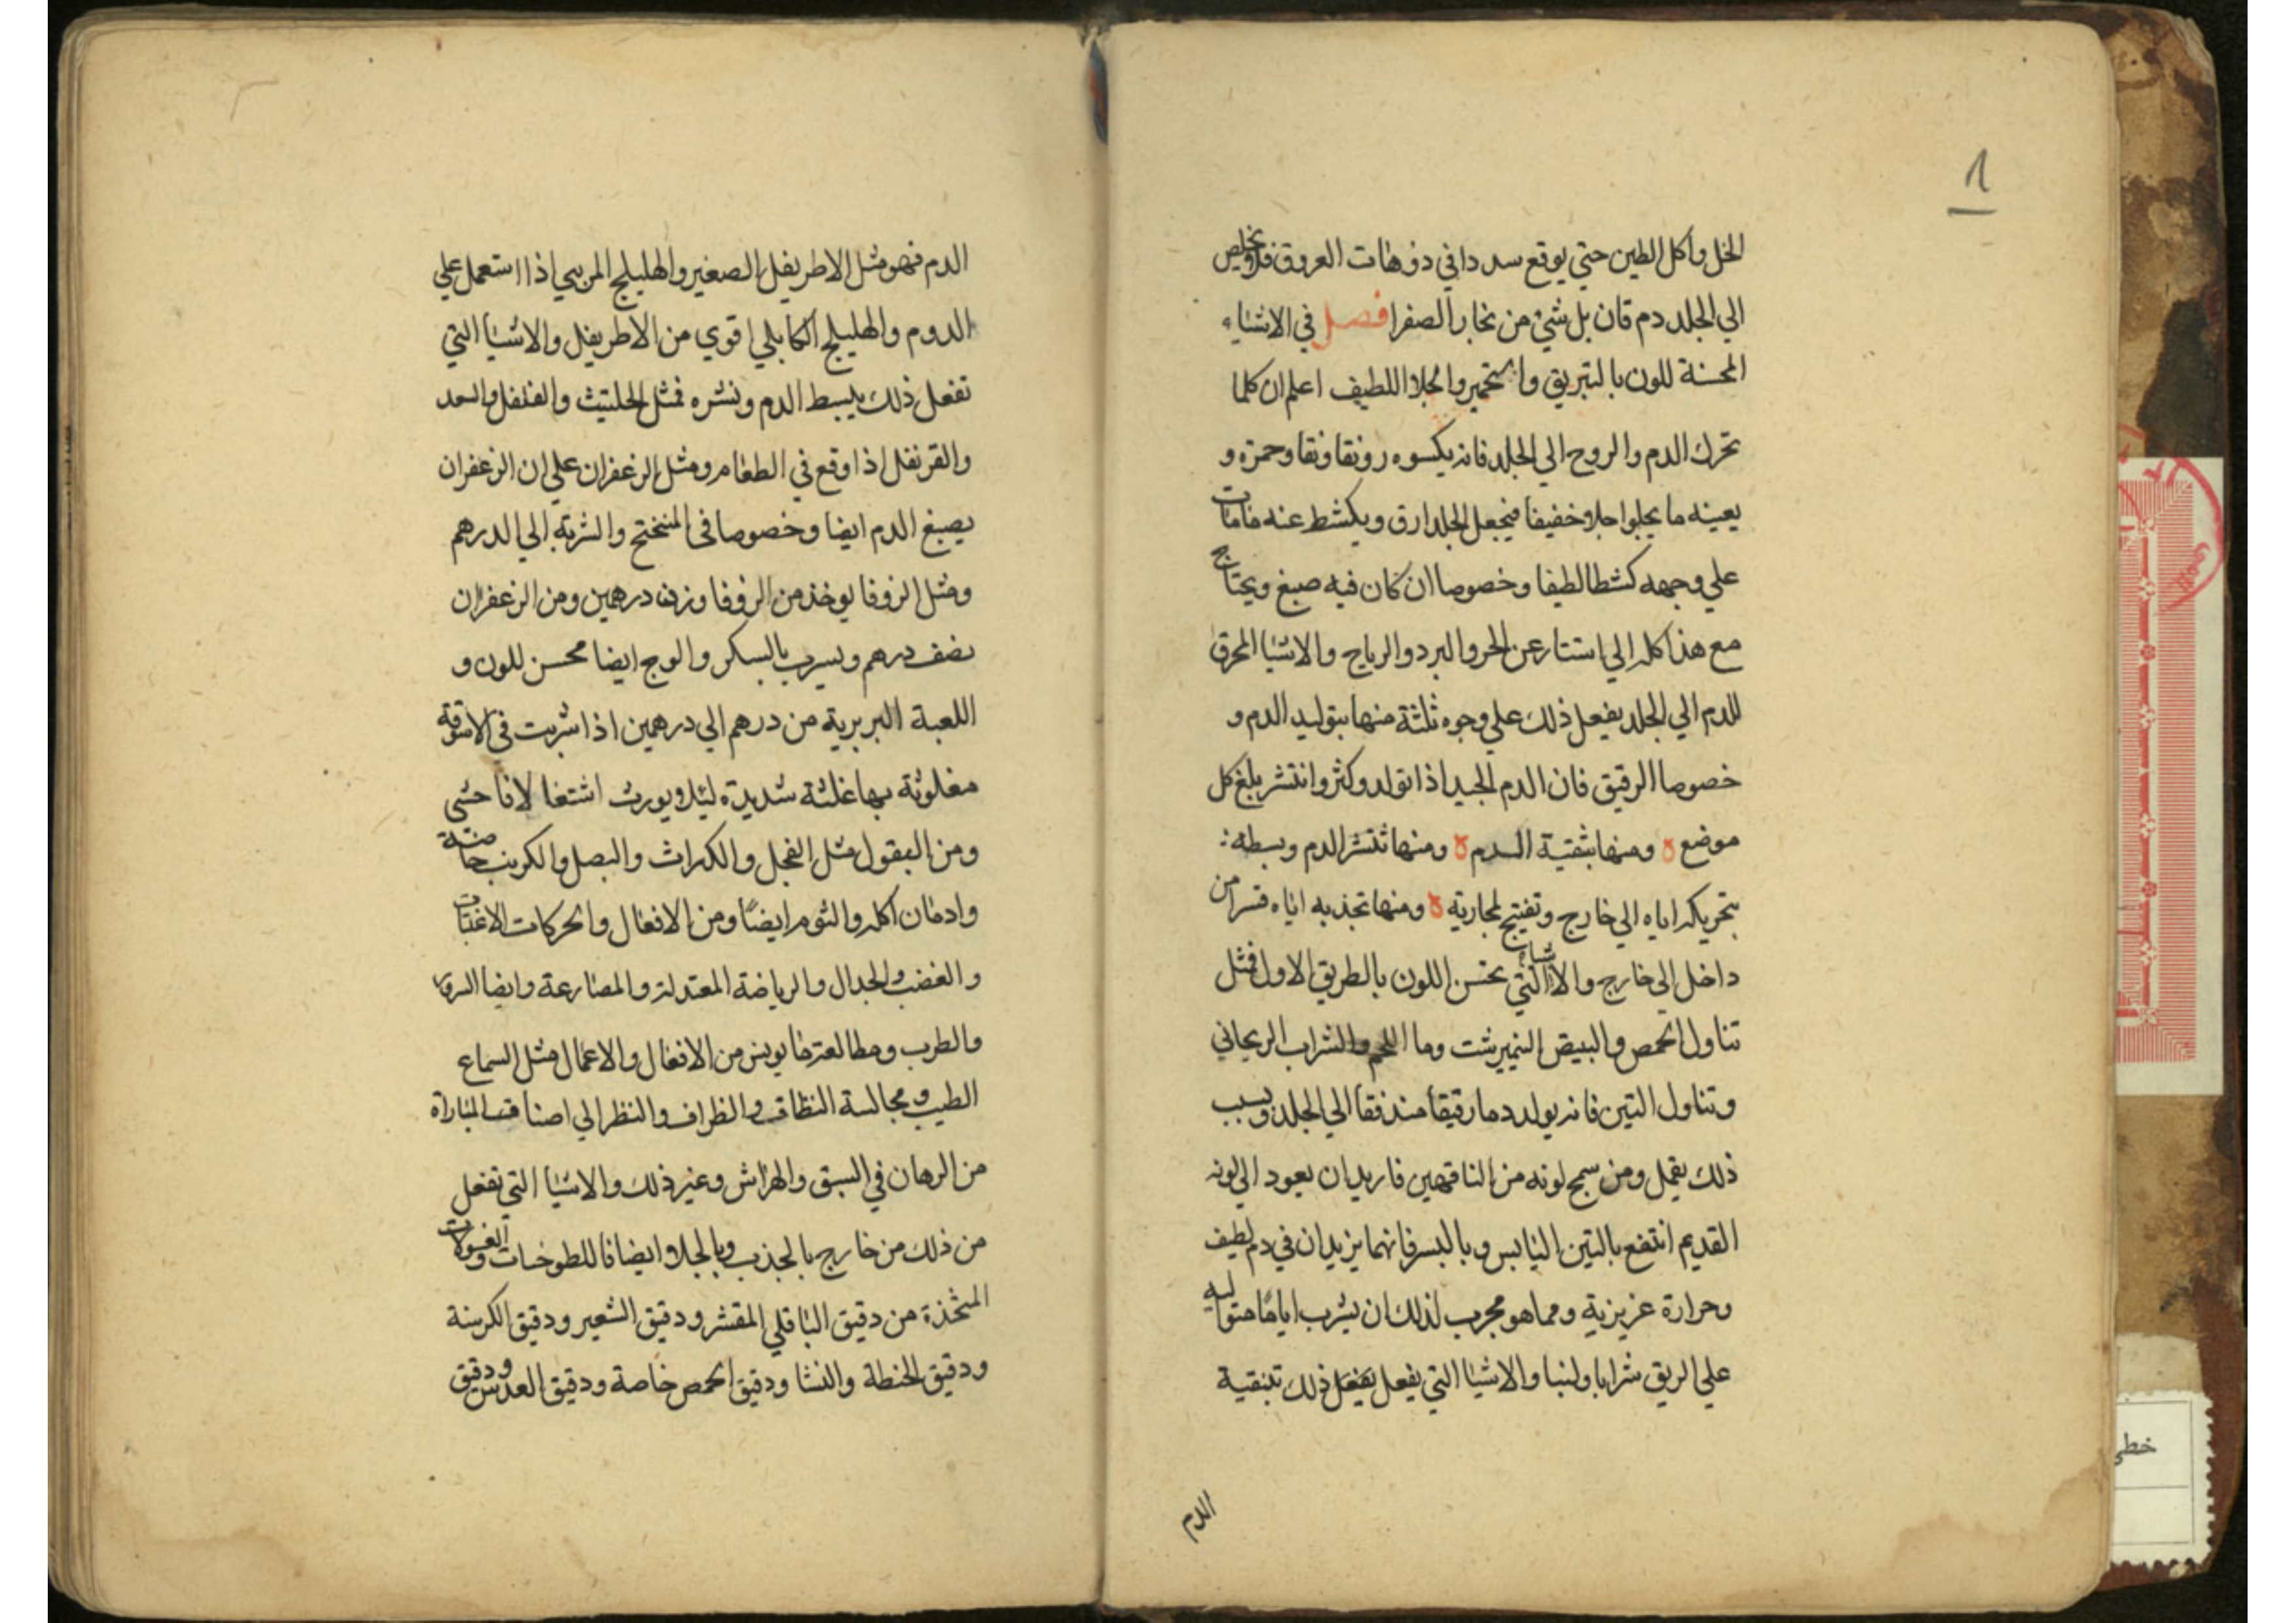 الخل واكل الطين حتي يوقع سددا في ذوهات العروق فلا يخلص
الي الجلد دم قان بل شئ من بخار الصفرا فصل في الاشياء
المحسنة للون بالتبريق والتحمير والجلا اللطيف اعلم ان كلما
تحرك الدم والروح الي الجلد فانه يكسوه رونقا ونقا وحمرة و
يعينه ما يجلوا جلاء خفيفا فيجعل الجلد ارق ويكشط عنه مامات
علي وجهه كشطا لطيفا وخصوصا ان كان فيه صبغ ويحتاج
مع هذا كله الي استتار عن الحر والبرد والرياح والاشيا المحرق
للدم الي الجلد يفعل ذلك علي وجوه ثلثة منها بتوليد الدم و
خصوصا الرقيق فان الدم الجيد اذا تولد وكثر وانتشر بلغ كل
موضع ه ومنها بتنقية الدم ه ومنها تنشر الدم وبسطه
بتحريكه اياه الي خارج وتفتيح لمجاريه ه ومنها تجذبه اياه قسرا من
داخل الي خارج والاشياء التي تحسن اللون بالطريق الاول فمثل
تناول الحمص والبيض النيمبرشت وما اللحم والشراب الريحاني
وتناول التين فانه يولد دما رقيقا مندفقا الي الجلد وبسبب
ذلك يقمل ومن سمج لونه من الناقهين فاريد ان يعود الي لونه
القديم انتفع بالتين اليابس وبالبسر فانهما يزيدان في دم لطيف
وحرارة غريزية ومما هو مجرب لذلك ان يشرب اياما متواليه
علي الريق شرابا ولبنا والاشيا التي يفعل يفعل ذلك تبنقية
الدم
الدم فهو مثل الاطريفل الصغير والهليلج المربي اذا استعمل علي
الدوم والهليلج الكابلي اقوي من الاطريفل والاشيا التي
تفعل ذلك يبسط الدم ونشره فمثل الحلتيث والفلفل والسعد
والقرنفل اذا وقع في الطعام ومثل الزعفران علي ان الزعفران
يصبغ الدم ايضا وخصوصا في المنختج والشربة الي الدرهم
ومثل الزوفا يوخذ من الزوفا وزن درهمين ومن الزعفران
نصف درهم ويسرب بالسكر والوج ايضا محسن للون و
اللعبة البربرية من درهم الي درهمين اذا شربت في الاسوقة
مغلوثة بها غلثة شديدة ليلا يورث اشتغالا فاحشي
ومن البقول مثل الفجل والكراث والبصل والكرنب خاصة
وادمان اكله والثوم ايضًا ومن الافعال والحركات الاغتات
والغضب والجدال والرياضة المعتدلة والمصارعة وايضا السرور
والطرب ومطالعة ما يونس من الافعال والاعمال مثل السماع
الطيب ومجالسة النظاف والظراف والنظر الي اصناف المباراة
من الرهان في السبق والهراش وغير ذلك والاشيا التي تفعل
من ذلك من خارج بالجذب وبالجلاء ايضا فاللطوخات والغسولات
المتخذة من دقيق الباقلي المقشر ودقيق الشعير ودقيق الكرسنة
ودقيق الحنطة والنشا ودقيق الحمص خاصة ودقيق العدس ودقيق
خطي